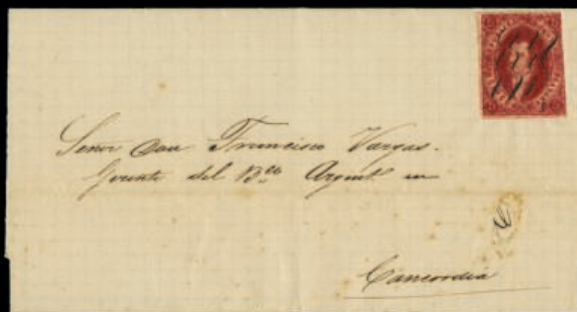 Señor Don Francisco Vargas.
Gerente del Bco Argent. en
Concordia